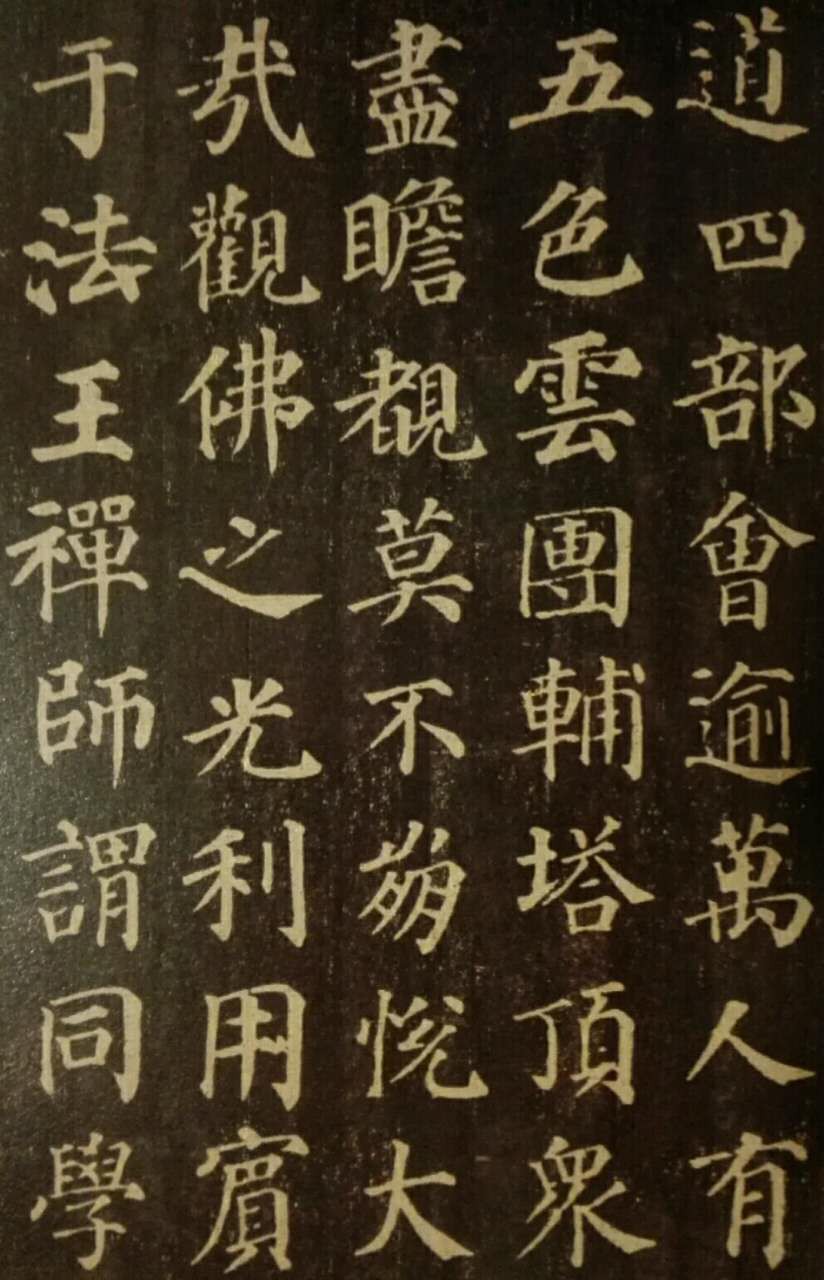 道四部會逾萬人有
五色雲團輔塔頂眾
盡瞻覩莫不勇悅大
㢤觀佛之光利用賓
于法王禪師謂同學